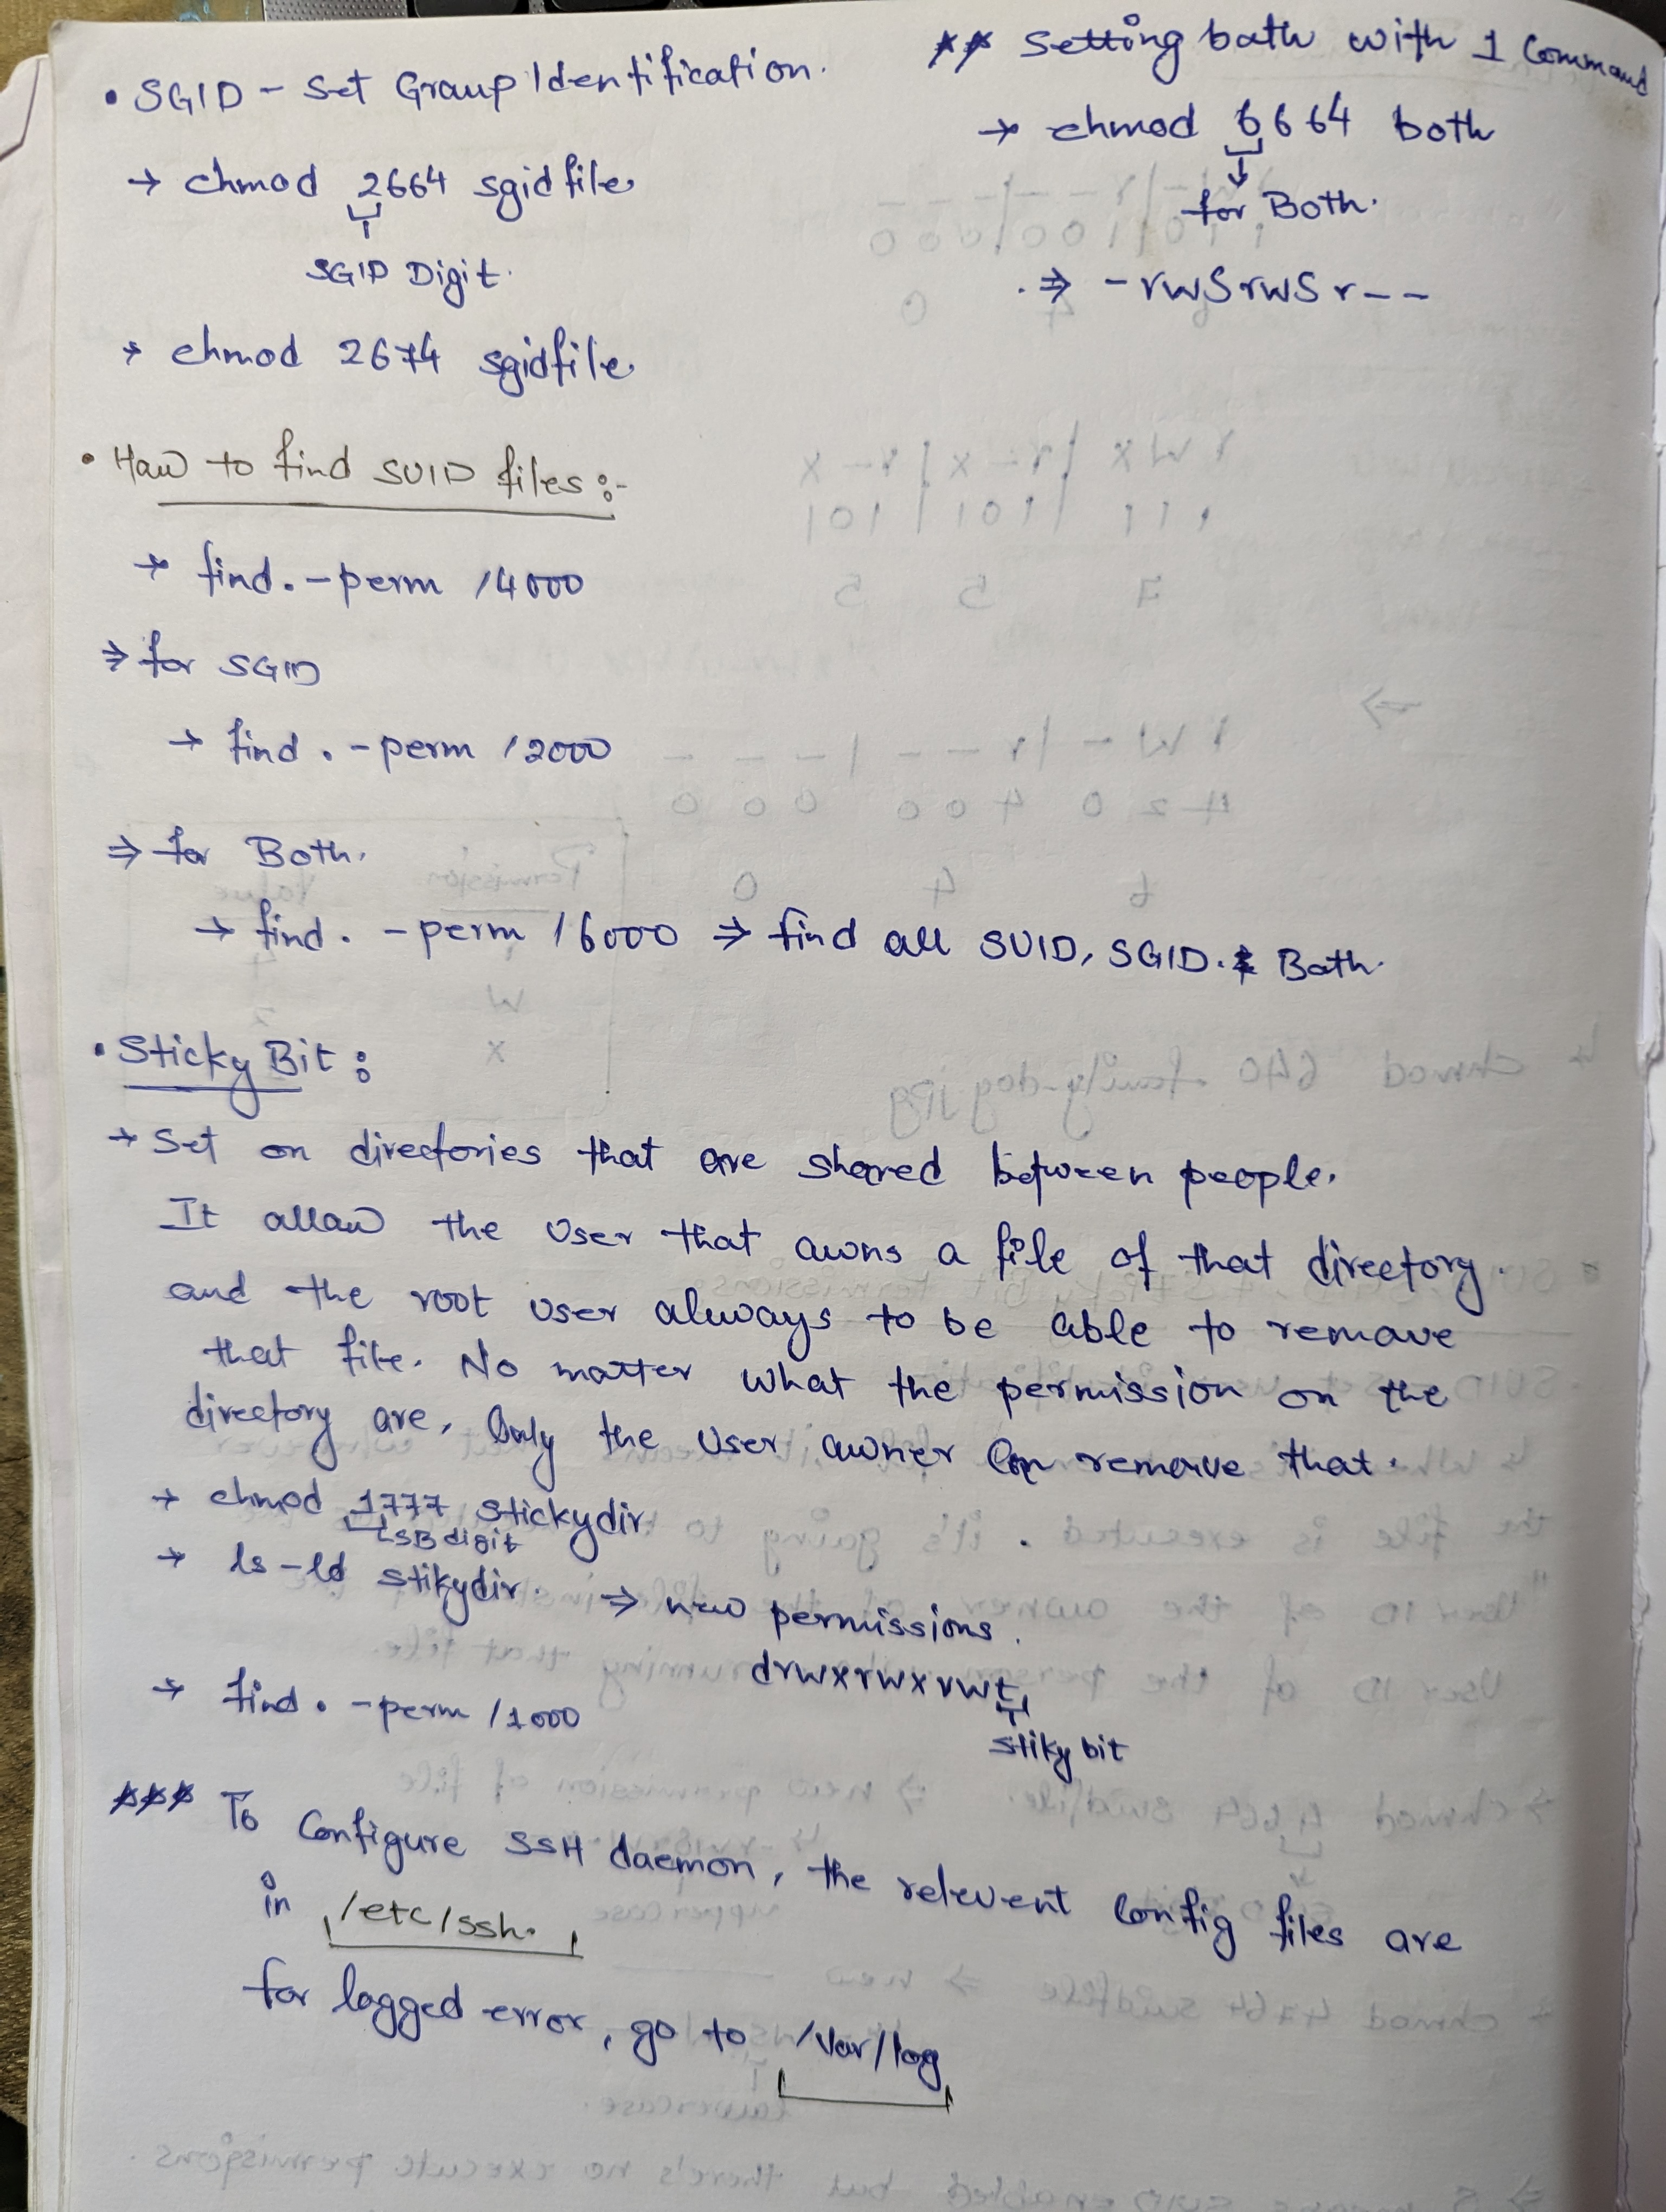 • SGID - Set Group Identification.
→ chmod 2664 sgidfile
SGID Digit.
→ chmod 2674 sgidfile
** Setting both with 1 Command
→ chmod 6664 both
for Both.
⇒ -rwSrwSr--
• How to find SUID files :-
→ find . -perm /4000
⇒ for SGID
→ find . -perm /2000
⇒ for Both.
→ find . -perm /6000 ⇒ find all SUID, SGID. & Both.
• Sticky Bit :
→ Set on directories that are shared between people.
It allow the user that owns a file of that directory.
and the root user always to be able to remove
that file. No matter what the permission on the
directory are, Only the user owner can remove that.
→ chmod 1777 stickydir
SB digit
→ ls -ld stikydir. ⇒ new permissions.
drwxrwxrwt
stiky bit
→ find . -perm /1000
*** To Configure SSH daemon, the relevent config files are
in /etc/ssh.
for logged error, go to /var/log